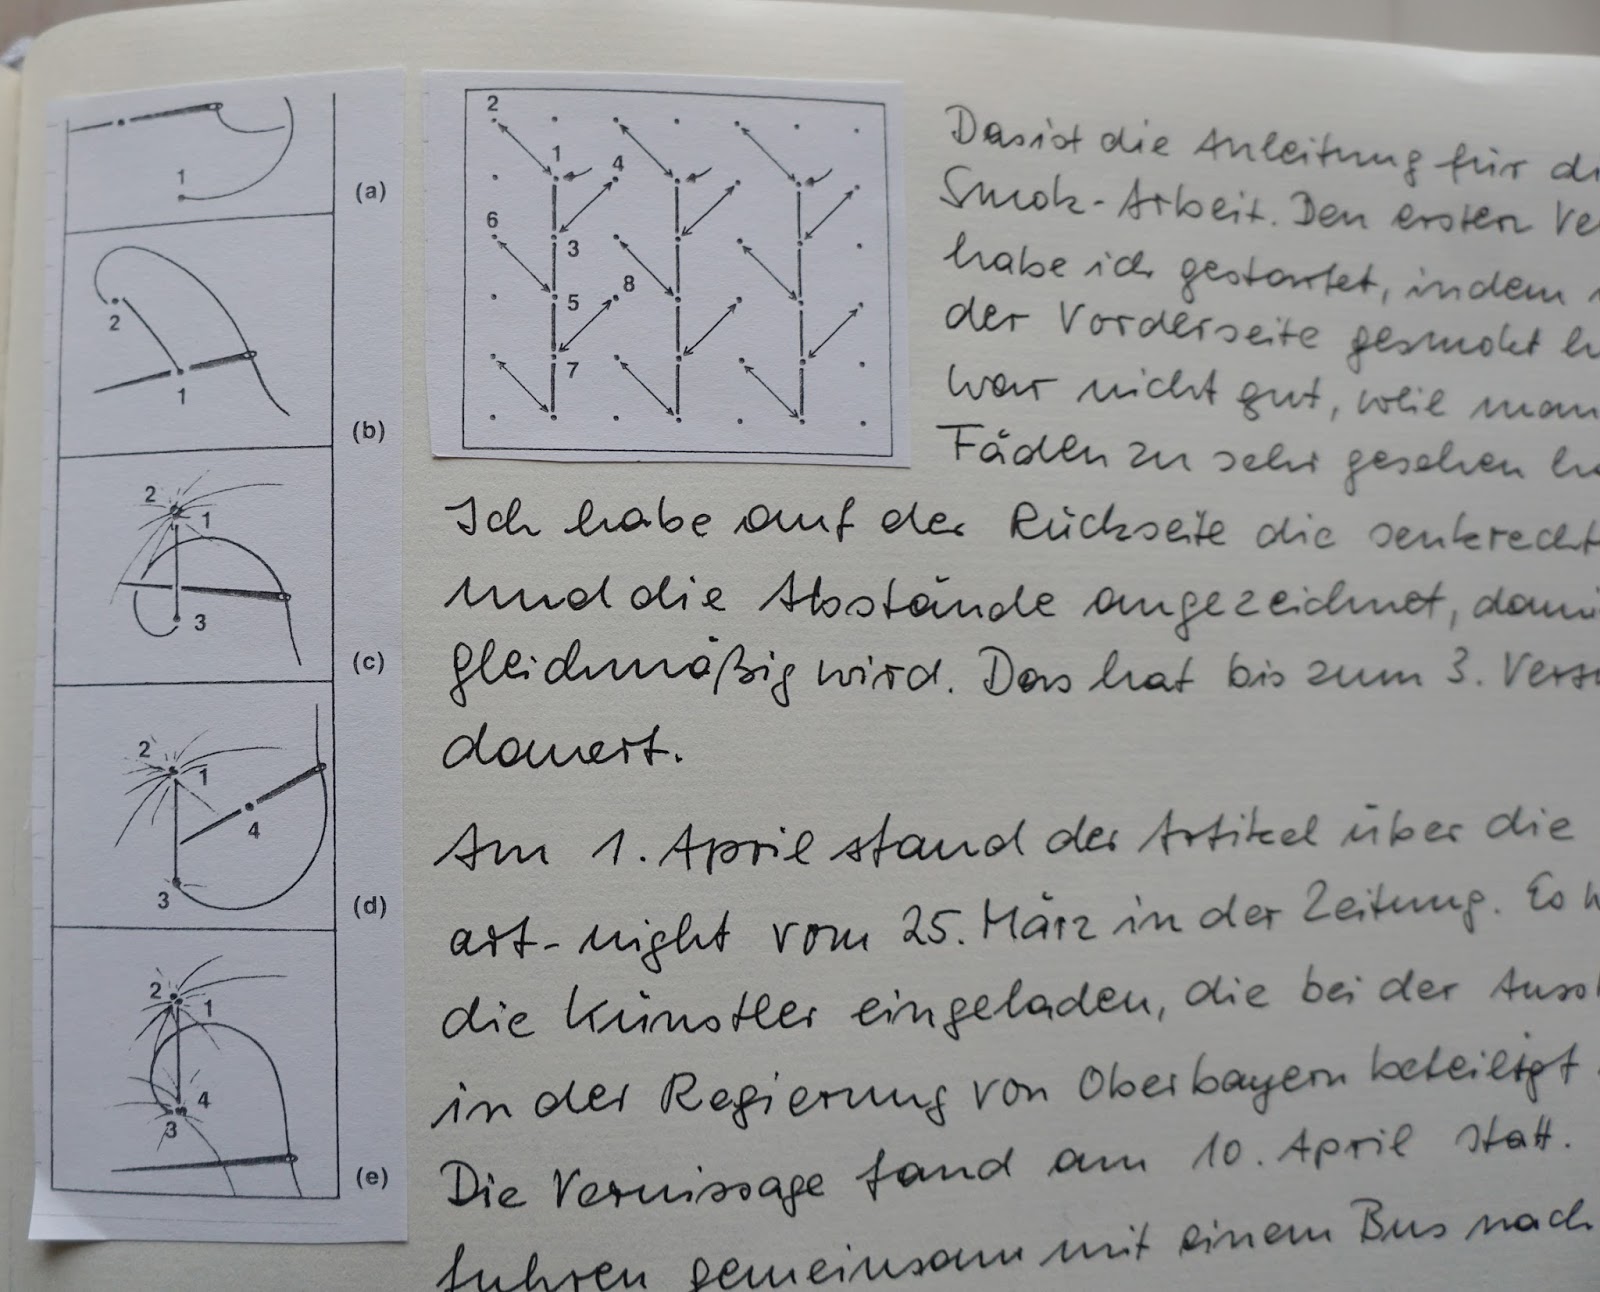 1
(a)
2
1
(b)
2
1
3
(c)
2
1
4
3
(d)
2
1
4
3
(e)
2
1
4
6
3
5
8
7
Das ist die Anleitung für
Smok-Arbeit. Den ersten
habe ich gestartet, indem
der Vorderseite gesmokt
war nicht gut, weil man
Fäden zu sehr gesehen
Ich habe auf der Rückseite die senkrecht
und die Abstände angezeichnet,
gleichmäßig wird. Das hat bis zum 3.
dauert.
Am 1. April stand der Artikel über die
art-night vom 25. März in der Zeitung. Es
die Künstler eingeladen, die bei der
in der Regierung von Oberbayern beteiligt
Die Vernissage fand am 10. April statt.
fuhren gemeinsam mit einem Bus nach